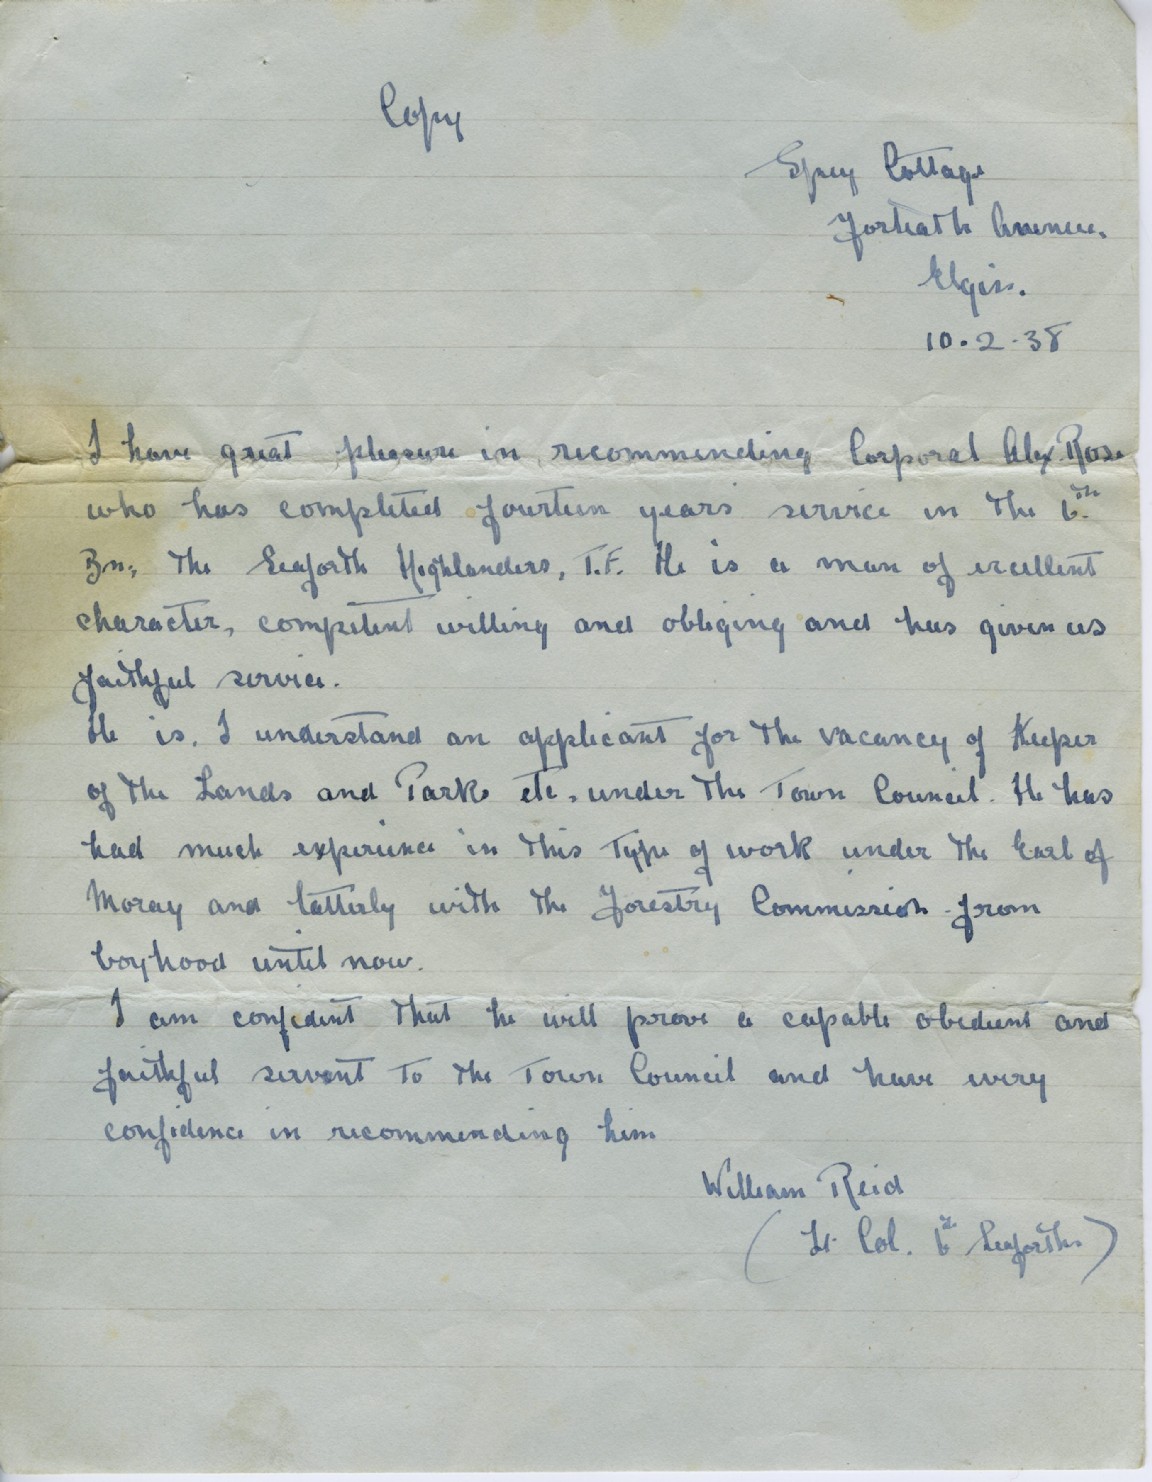 Copy
Spey Cottage
Forteath Avenue.
Elgin.
10.2.38
I have great pleasure in recommending Corporal Alex Rose
who has completed fourteen years service in the 6th
Bn, the Seaforth Highlanders, T.F. He is a man of excellent
character, competent willing and obliging and has given us
faithful service.
He is, I understand an applicant for the vacancy of Keeper
of the Lands and Parks etc, under the Town Council. He has
had much experience in this type of work under the Earl of
Moray and latterly with the Forestry Commission from
boyhood until now.
I am confident that he will prove a capable obedient and
faithful servant to the Town Council and have every
confidence in recommending him
William Reid
(Lt Col. 6th Seaforths)